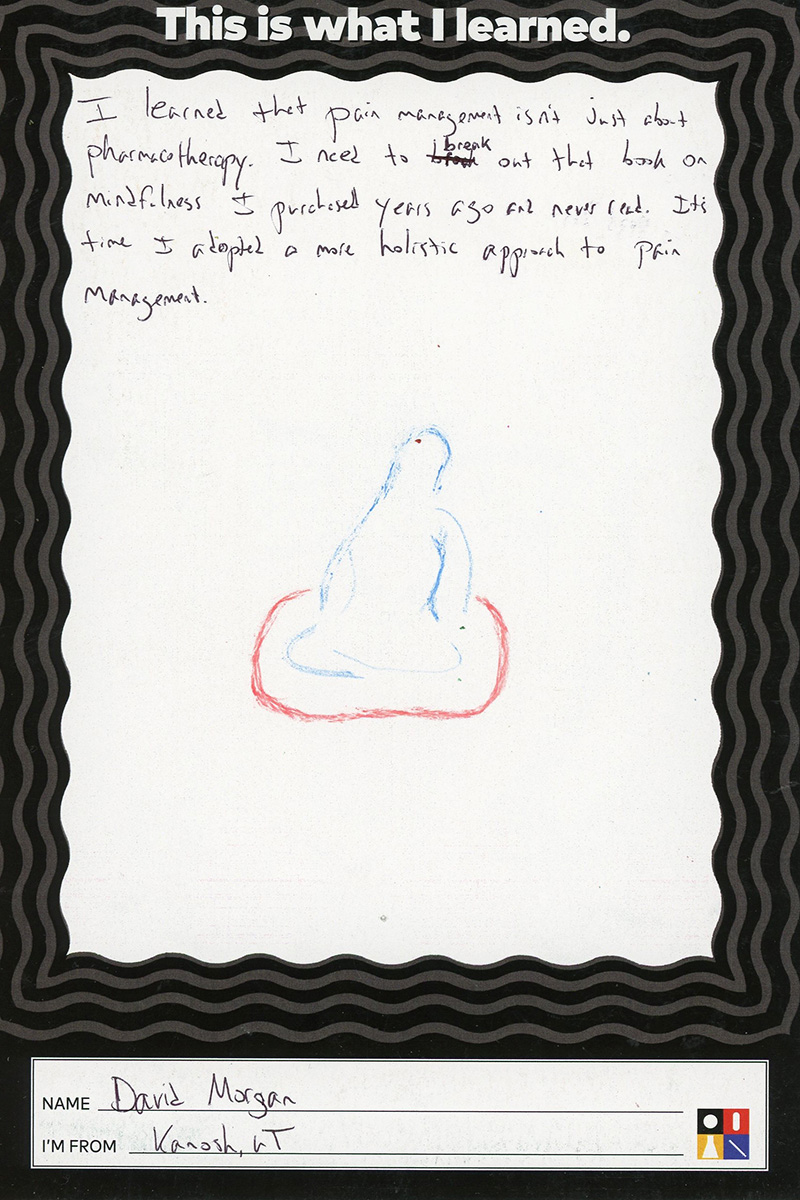 This is what I learned.
I learned that pain management isn't just about
pharmacotherapy. I need to break out that book on
mindfulness I purchased years ago and never read. It's
time I adopted a more holistic approach to pain
management.
NAME David Morgan
I'M FROM Kanosh, UT